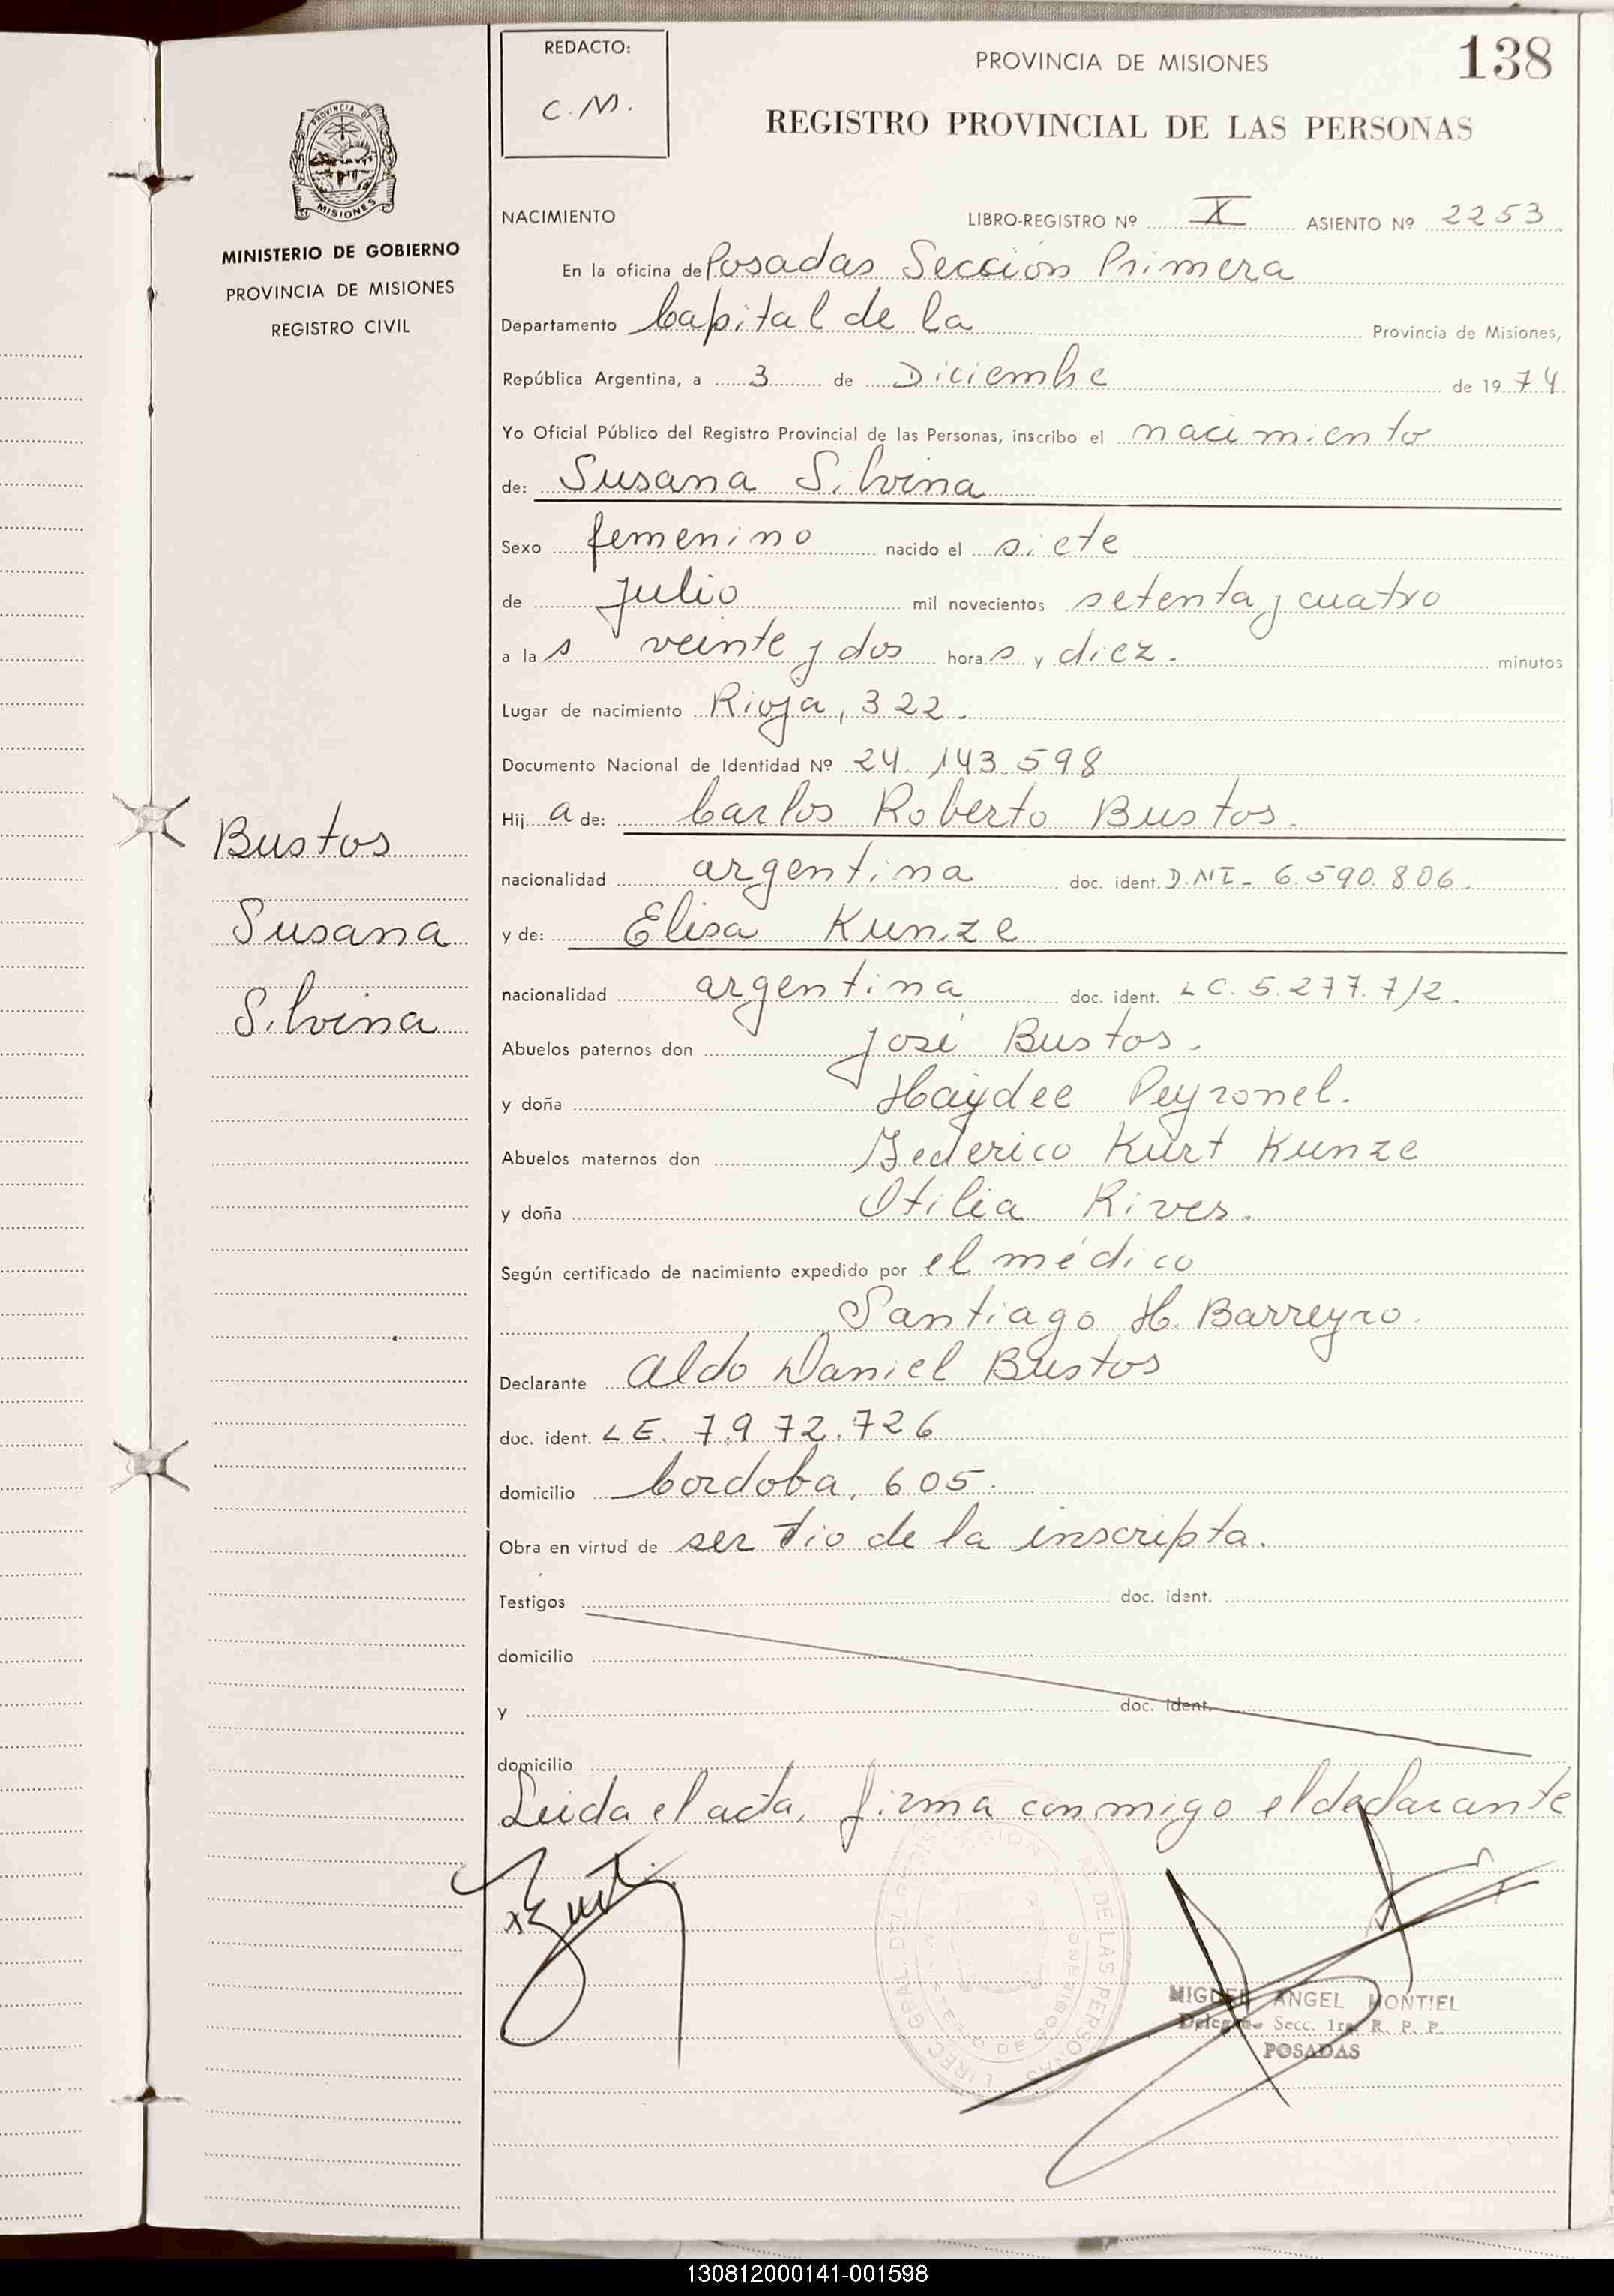 REDACTO:
C.M.
PROVINCIA DE MISIONES
138
REGISTRO PROVINCIAL DE LAS PERSONAS
PROVINCIA DE
MISIONES
MINISTERIO DE GOBIERNO
PROVINCIA DE MISIONES
REGISTRO CIVIL
NACIMIENTO LIBRO-REGISTRO Nº X ASIENTO Nº 2253
En la oficina de Posadas Sección Primera
Departamento Capital de la Provincia de Misiones,
República Argentina, a 3 de Diciembre de 1974
Yo Oficial Público del Registro Provincial de las Personas, inscribo el nacimiento
de: Susana Silvina
Sexo femenino nacido el siete
de Julio mil novecientos setenta y cuatro
a las veinte y dos horas y diez. minutos
Lugar de nacimiento Rioja, 322.
Documento Nacional de Identidad Nº 24.143.598
Hija de: Carlos Roberto Bustos.
nacionalidad argentina doc. ident. D.NI- 6.590.806.
y de: Elisa Kunze
nacionalidad argentina doc. ident. LC. 5.277.712.
Abuelos paternos don José Bustos.
y doña Haydee Peyronel.
Abuelos maternos don Federico Kurt Kunze
y doña Otilia Rives.
Según certificado de nacimiento expedido por el médico
Santiago H. Barreyro.
Declarante Aldo Daniel Bustos
doc. ident. LE. 7.972.726
domicilio Cordoba, 605.
Obra en virtud de ser tio de la inscripta.
Testigos doc. ident.
domicilio
y doc. ident.
domicilio
Leida el acta, firma conmigo el declarante
Bustos
Susana
Silvina
MIGUEL ANGEL MONTIEL
Delegado Secc. 1ra. R. P. P.
POSADAS
130812000141-001598